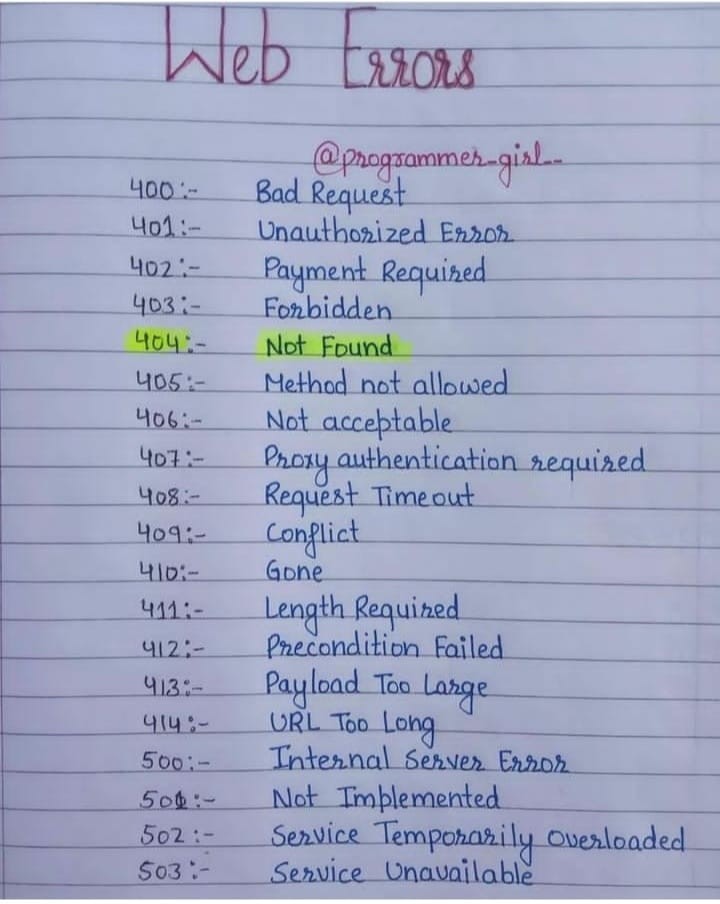 Web Errors
@programmer-girl--
400:- Bad Request
401:- Unauthorized Error
402:- Payment Required
403:- Forbidden
404:- Not Found
405:- Method not allowed
406:- Not acceptable
407:- Proxy authentication required
408:- Request Timeout
409:- Conflict
410:- Gone
411:- Length Required
412:- Precondition Failed
413:- Payload Too Large
414:- URL Too Long
500:- Internal Server Error
501:- Not Implemented
502:- Service Temporarily Overloaded
503:- Service Unavailable